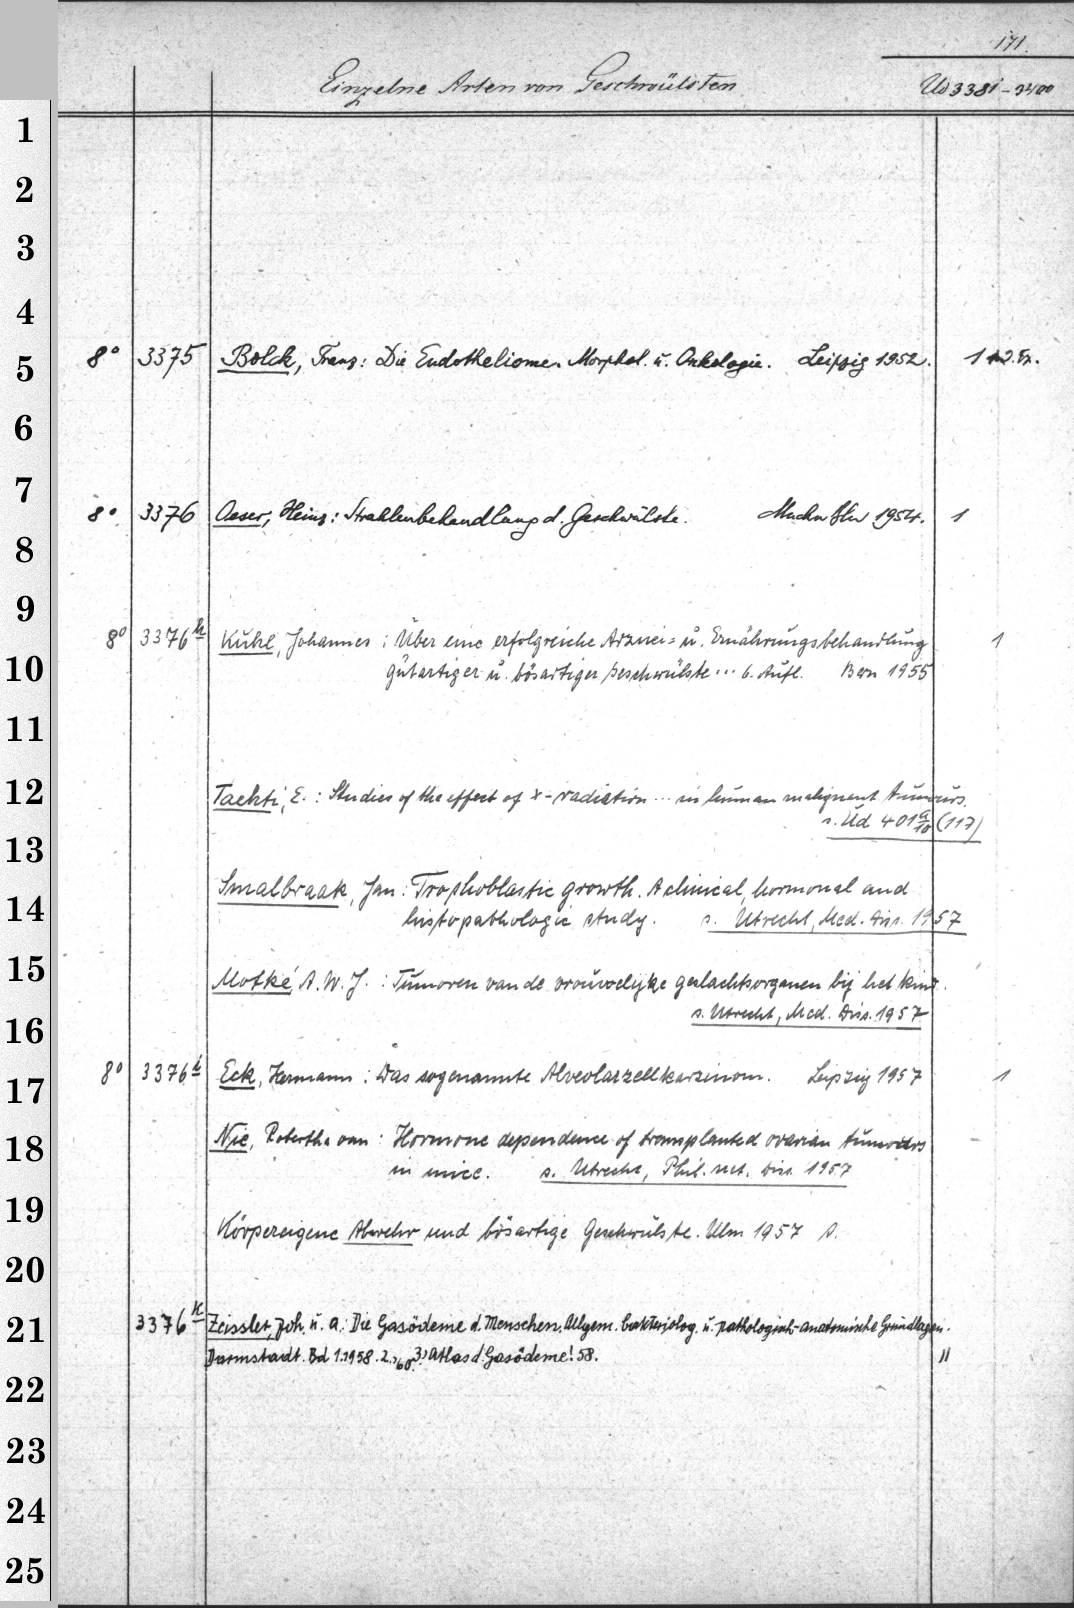 171.
Einzelne Arten von Geschwülsten Ud 3381-3400
1
2
3
4
5
6
7
8
9
10
11
12
13
14
15
16
17
18
19
20
21
22
23
24
25
8° 3375 Bolck, Franz: Die Endotheliome. Morphol. u. Onkologie. Leipzig 1952. 1
8° 3376 Oeser, Heinz: Strahlenbehandlung d. Geschwülste. 1954. 1
8° 3376h Kuhl, Johannes: Über eine erfolgreiche Arznei= u. Ernährungsbehandlung 1
gutartiger u. bösartiger Geschwülste ... 6. Aufl. Bern 1955
Taehti, E.: Studies of the effect of x-radiation ... in human malignant tumours.
s. Ud 401 a/10 (117)
Smalbraak, Jan: Trophoblastic growth. A clinical, hormonal and
histopathologic study. s. Utrecht, Med. Diss. 1957
Motké, A. W. J.: Tumoren van de vrouwelijke geslachtsorganen bij het kind.
s. Utrecht, Med. Diss. 1957
8° 3376i Eck, Hermann: Das sogenannte Alveolarzellkarzinom. Leipzig 1957 1
Nie, Robertha van: Hormone dependence of transplanted ovarian tumours
in mice. s. Utrecht, Phil. nat. Diss. 1957
Körpereigene Abwehr und bösartige Geschwülste. Ulm 1957 s.
3376k Zeissler, Joh. u. a.: Die Gasödeme d. Menschen. Allgem. bakteriolog. u. pathologisch-anatomische Grundlagen.
Darmstadt. Bd 1. 1958. 2. 60. 3: Atlas d. Gasödeme! 58. "